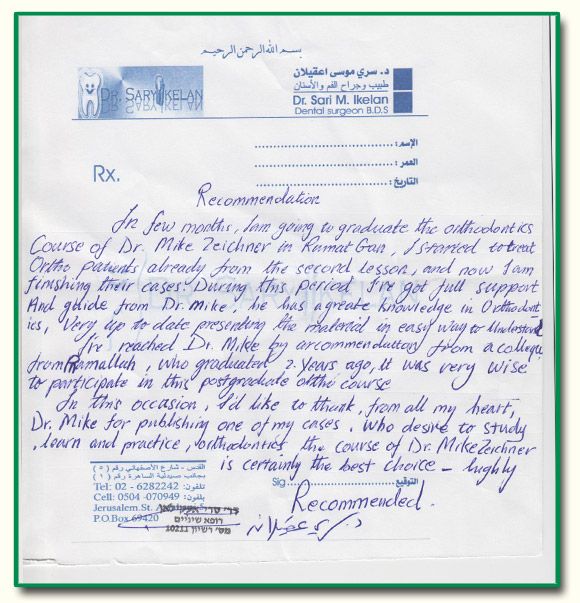 بسم الله الرحمن الرحيم
DR. SARY IKELAN
د. سري موسى اعقيلان
طبيب وجراح الفم والأسنان
Dr. Sari M. Ikelan
Dental surgeon B.D.S
الإسم :
العمر :
التاريخ :
Rx.
Recommendation
In few months, I am going to graduate the orthodontics
Course of Dr. Mike Zeichner in Ramat Gan, I started to treat
Ortho patients already from the second lesson, and now I am
finishing their cases. During this period I've got full support
And guide from Dr. Mike, he has a greate knowledge in Orthodont
ics, Very up to date presenting the material in easy way to Understand
I've reached Dr. Mike by a recommendation from a colleg
from Ramallah, who graduated 2 years ago, it was very wise
to participate in this postgraduate ortho course
In this occasion, I'd like to thank, from all my heart,
Dr. Mike for publishing one of my cases. Who desire to study
, learn and practice, orthodontics the course of Dr. Mike Zeichner
is certainly the best choice - highly
Recommended.
القدس - شارع الأصفهاني رقم (٥)
بجانب صيدلية الساهرة رقم (١)
Tel: 02 - 6282242 تلفون:
Cell: 0504 -070949 بلفون:
Jerusalem.St.
P.O.Box 69420
Sig. التوقيع:
רופא שיניים
מס' רשיון 10211